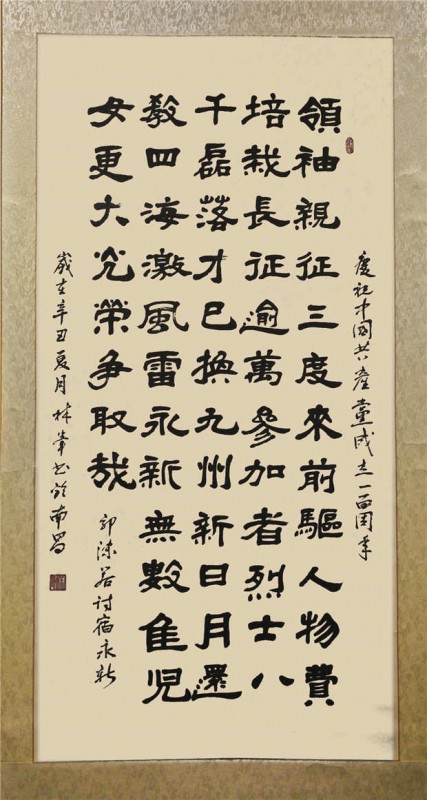 慶祝中國共產黨成立一百周年
領袖親征三度來前驅人物費
培栽長征逾萬參加者烈士八
千磊落才已換九州新日月還
教四海激風雷永新無數佳兒
女更大光榮爭取哉
郭沫若詩宿永新
歲在辛丑夏月林书於南昌